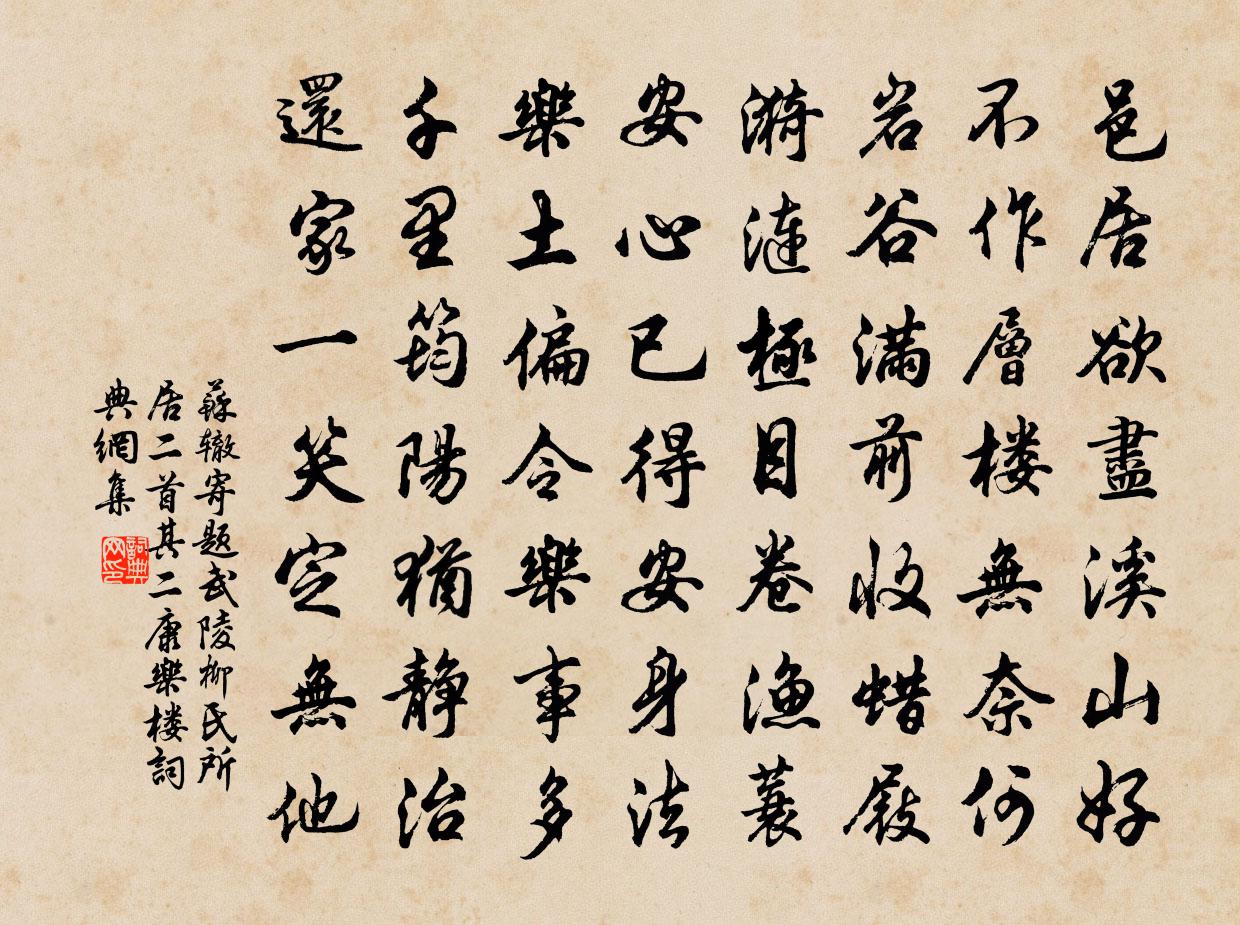 邑居欲盡溪山好
不作層楼無奈何
岩谷滿前收蜡屐
漪漣極目卷漁蓑
安心已得安身法
樂土偏令樂事多
千里筠陽猶静治
還家一笑定無他
蘇辙寄题武陵柳氏所
居二首其二康樂楼詞
典網集
詞典網印